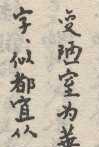 变陋室为
字、似都宜从